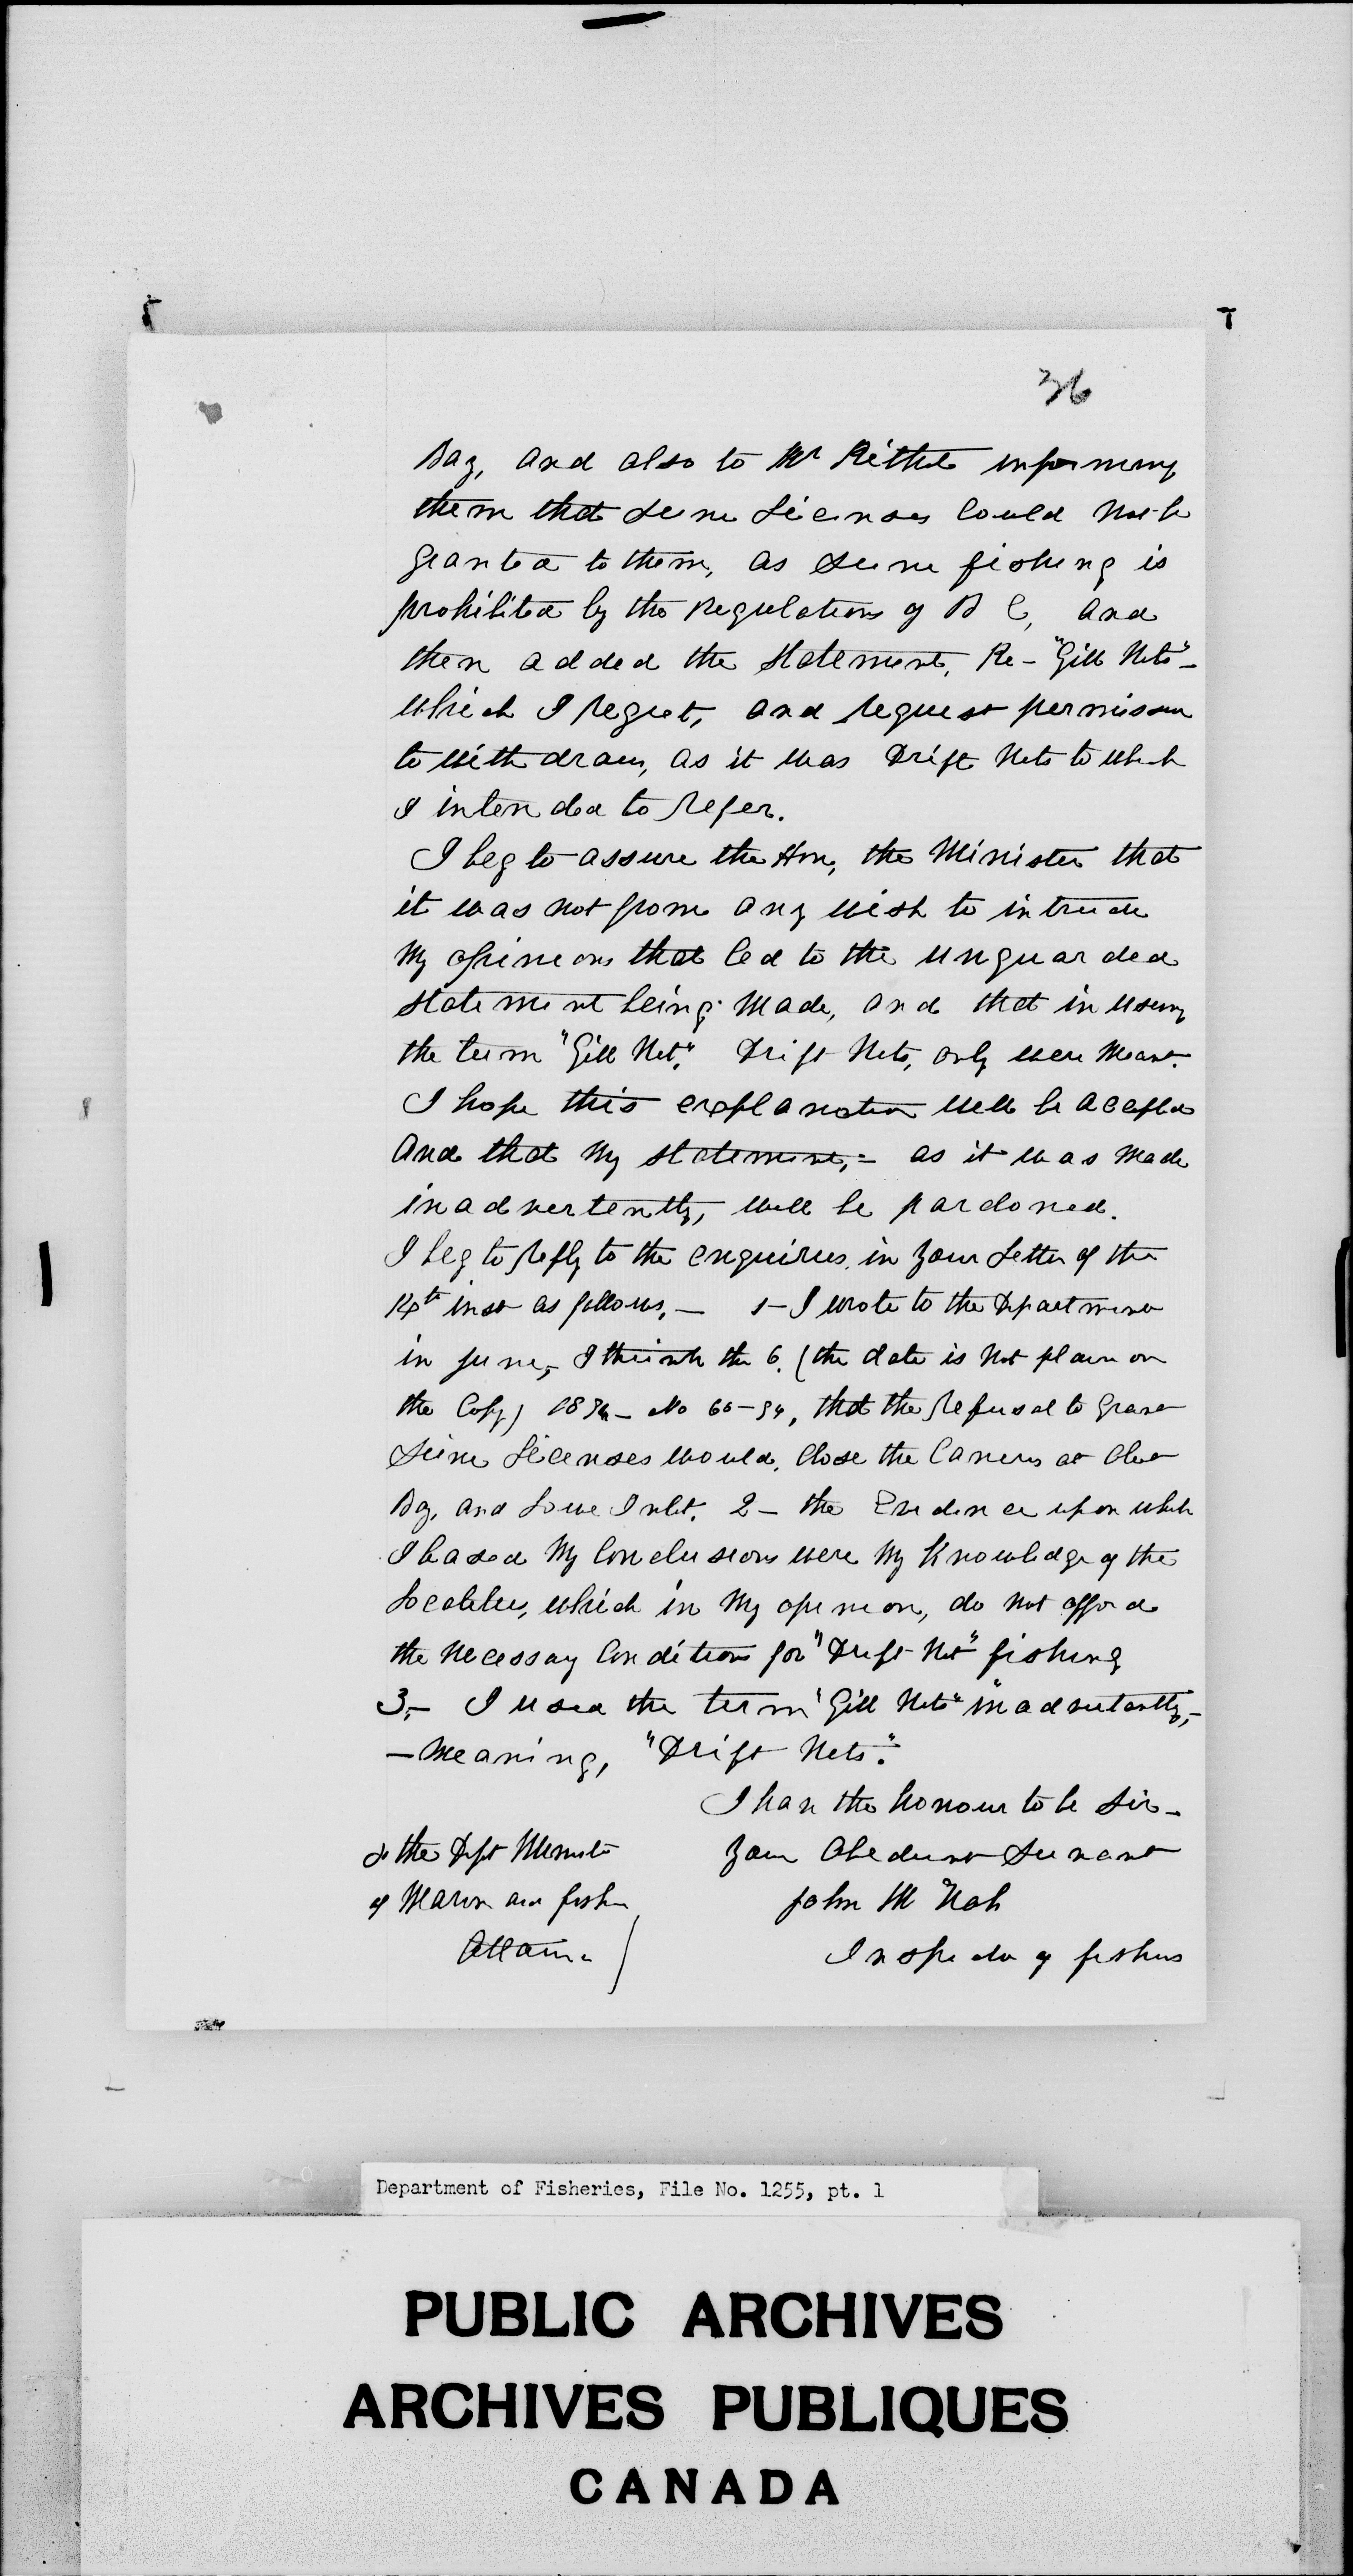 36
Bay, and also to Mr Rithet informing
them that seine licenses could not be
granted to them, as seine fishing is
prohibited by the Regulations of B C, and
then added the statement, Re - "Gill Nets" -
which I regret, and request permission
to withdraw, as it was Drift Nets to which
I intended to refer.
I beg to assure the Hon, the Minister that
it was not from any wish to intrude
my opinions that led to the unguarded
statement being made, and that in using
the term "Gill Net". Drift Nets, only were meant.
I hope this explanation will be accepted
and that my statement, - as it was made
inadvertently, will be pardoned.
I beg to reply to the enquiries in your letter of the
inst as follows, - 1 - I wrote to the Department
in June, I think the 6. (the date is not plain on
the Copy) 1894 - No 66-94, that the refusal to grant
seine licenses would, close the Caneries at Alert
Bay, and Lowe Inlet. 2 - the Evidence upon which
I based my conclusions were my knowledge of the
localities, which in my opinion, do not afford
the necessary conditions for "Drift Net" fishing
3, - I used the term "Gill Nets" inadvertantly, -
- meaning, "Drift Nets".
I have the honour to be Sir -
Your Obedient Servant
John McNab
Inspector of fisheries
To the Dept Minister
of Marine and fisheries
Ottawa
Department of Fisheries, File No. 1255, pt. 1
PUBLIC ARCHIVES
ARCHIVES PUBLIQUES
CANADA